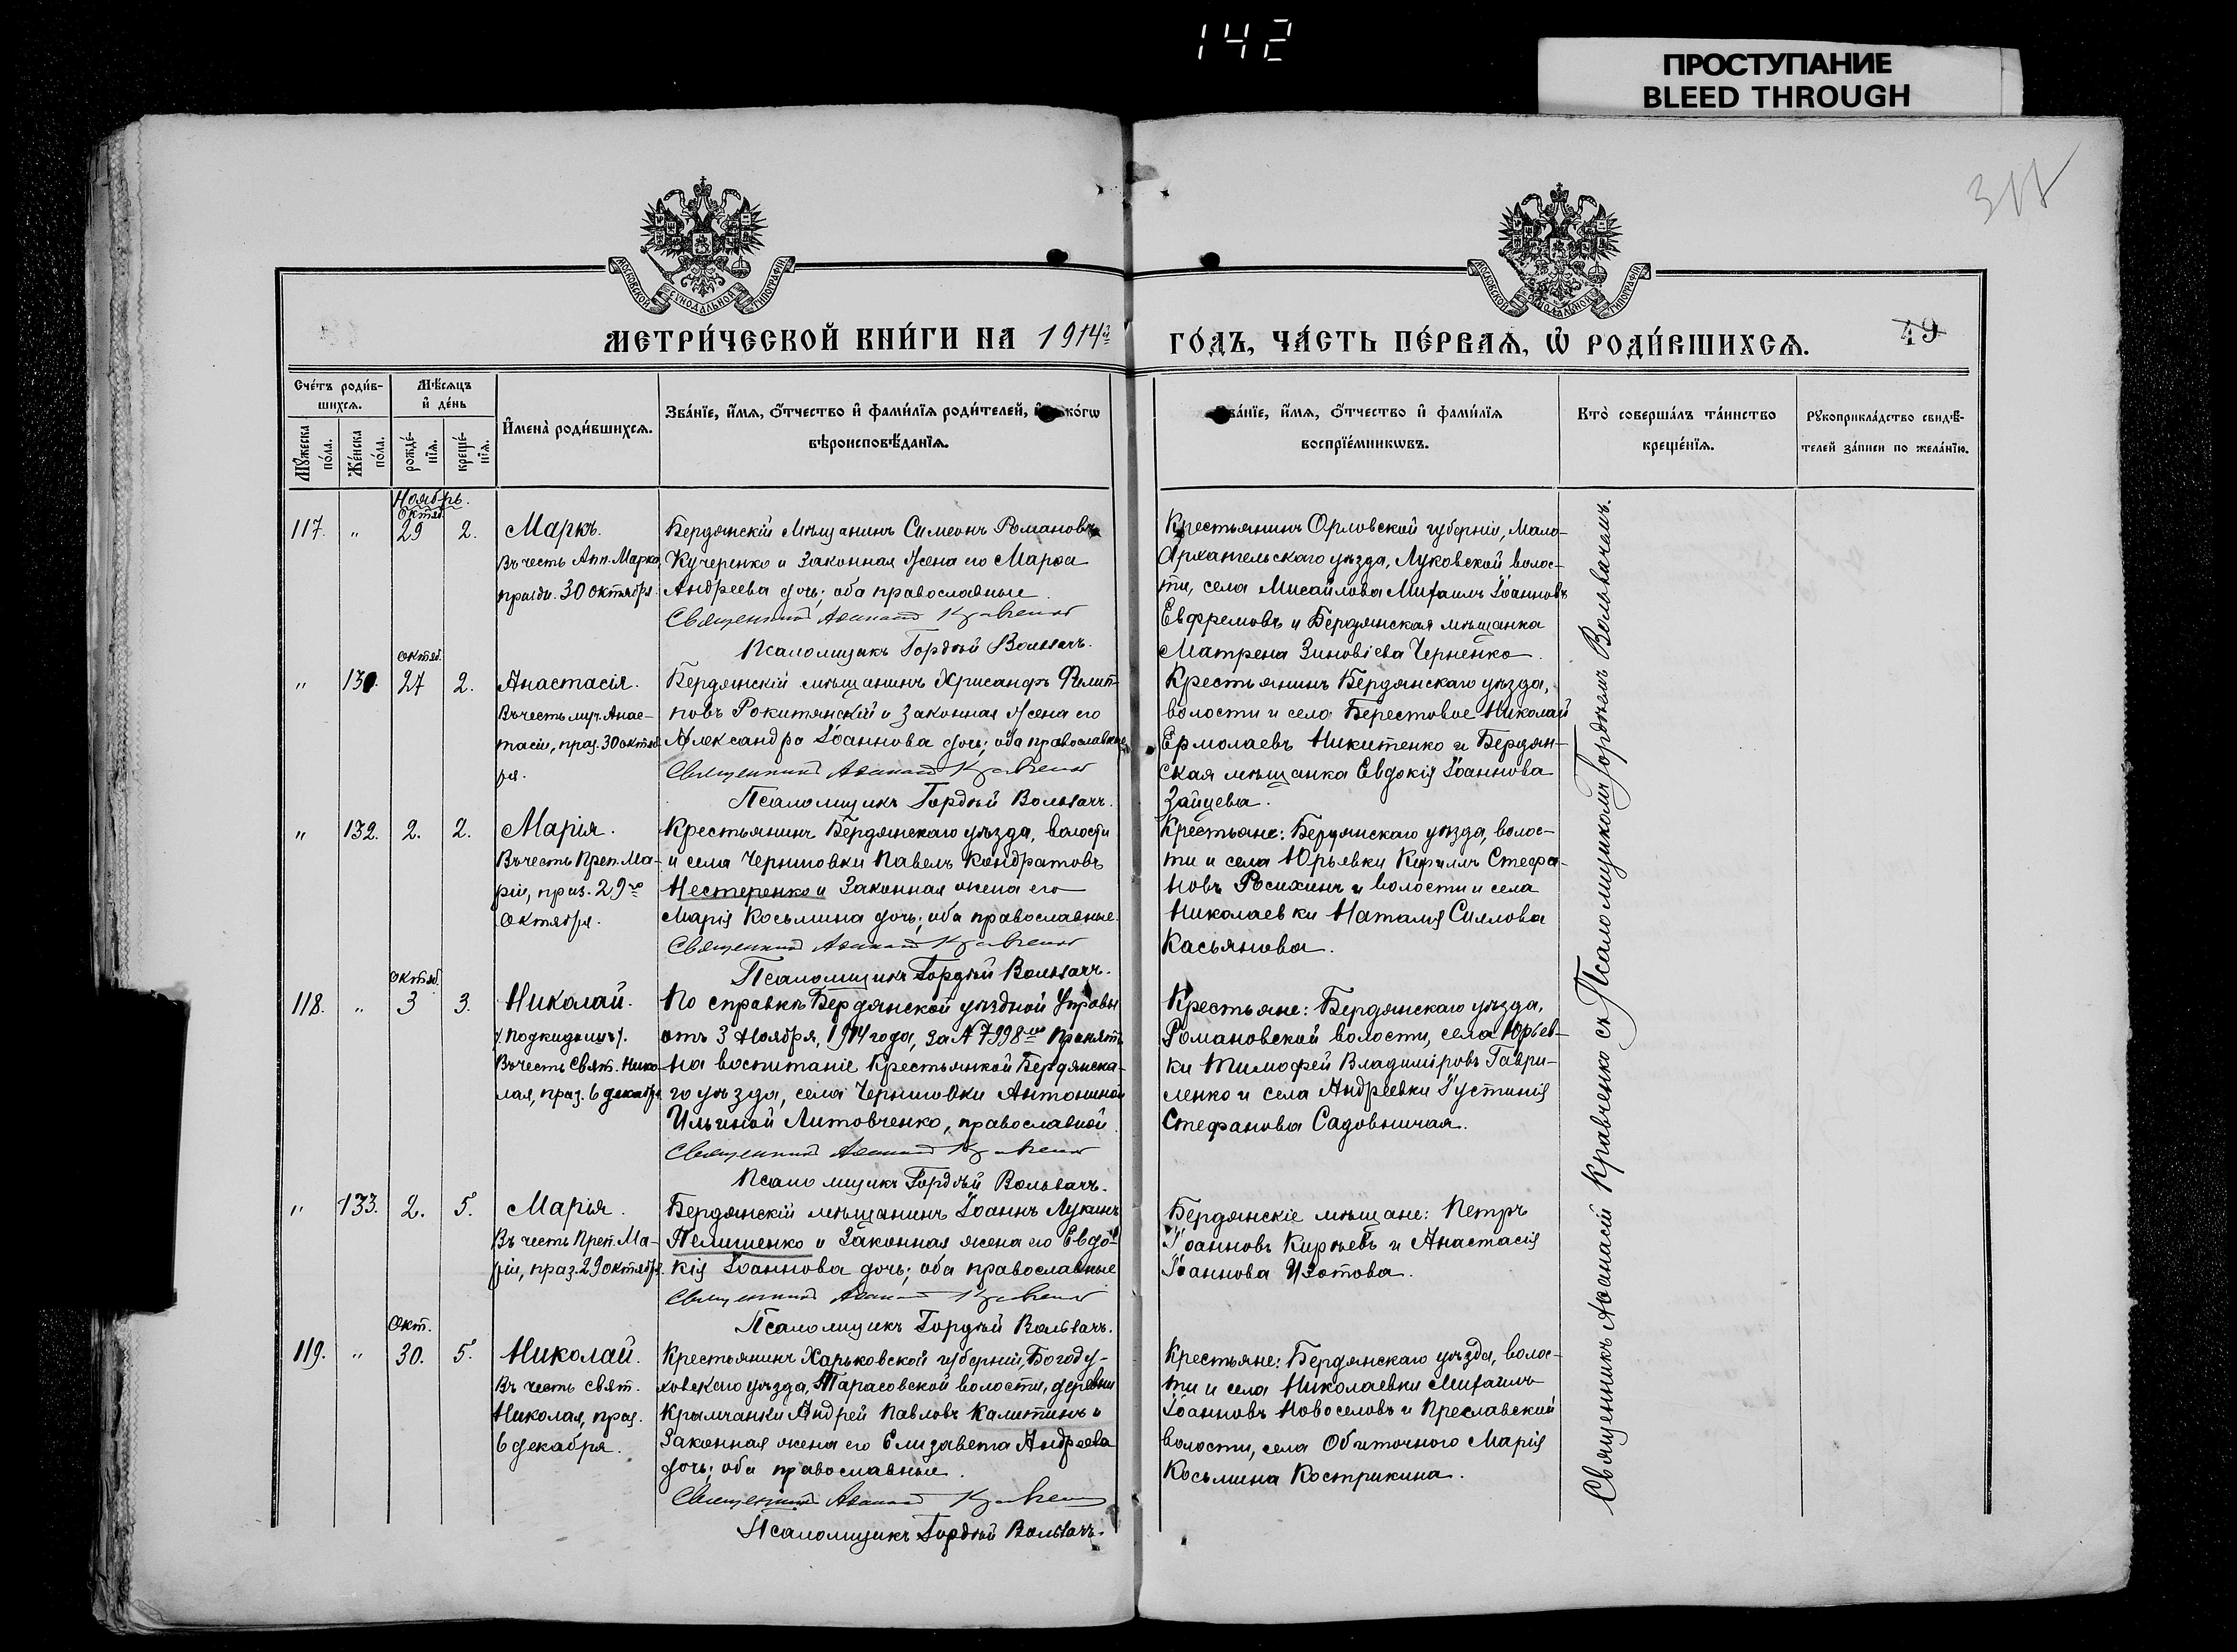 142
ПРОСТУПАНИЕ
BLEED THROUGH
МОСКОВСКОЙ СѴНОДАЛЬНОЙ ТИПОГРАФІИ
МОСКОВСКОЙ СѴНОДАЛЬНОЙ ТИПОГРАФІИ
МЕТРИ́ЧЕСКОЙ КНИ́ГИ НА 1914й
ГО́ДЪ, ЧА́СТЬ ПЕ́РВАѦ, Ѡ҆ РОДИ́ВШИХСѦ.
49
Сче́тъ роди́в-
шихсѧ.
Мꙋ́жеска по́ла.
Же́нска по́ла.
Мѣ́сѧцъ
и҆ де́нь
рожде́-
нїѧ.
креще́-
нїѧ.
И҆мена̀ роди́вшихсѧ.
Зва́нїе, и҆́мѧ, ѻ҆́тчество и҆ фами́лїѧ роди́телей, и҆ ко́гѡ
вѣроисповѣ́данїѧ.
Зва́нїе, и҆́мѧ, ѻ҆́тчество и҆ фами́лїѧ
воспрїе́мникѡвъ.
Кто̀ соверша́лъ та́инство
креще́нїѧ.
Рꙋкоприкла́дство свидѣ́-
телей за́писи по жела́нїю.
Ноябрь.
Октяб.
117. " 29 2. Маркъ.
Въ честь Ап. Марка,
праздн. 30 октября.
Бердянскій мѣщанинъ Симеонъ Романовъ
Кучеренко и законная жена его Марѳа
Андреева дочь; оба православные.
Священникъ Аѳанасій Кравченко
Псаломщикъ Гордѣй Вольвачъ.
Крестьянинъ Орловской губерніи, Мало-
Архангельскаго уѣзда, Луковской волос-
ти, села Мисайлова Михаилъ Іоанновъ
Евфремовъ и Бердянская мѣщанка
Матрена Зиновіева Черненко.
Октяб.
" 27 2. Анастасія.
Въ честь муч. Анас-
тасіи, праз. 30 октяб-
ря.
Бердянскій мѣщанинъ Хрисанфъ Филип-
повъ Рокитянскій и законная жена его
Александра Іоаннова дочь; оба православные
Священникъ Аѳанасій Кравченко
Псаломщикъ Гордѣй Вольвачъ.
Крестьянинъ Бердянскаго уѣзда,
волости и села Берестовое Николай
Ермолаевъ Никитенко и Бердян-
ская мѣщанка Евдокія Іоаннова
Зайцева.
" 132. 2. 2. Марія.
Въ честь Преп. Ма-
ріи, праз. 29го
октября.
Крестьянинъ Бердянскаго уѣзда, волости
и села Черниговки Павелъ Кондратовъ
Нестеренко и законная жена его
Марія Косьмина дочь; оба православные.
Священникъ Аѳанасій Кравченко
Псаломщикъ Гордѣй Вольвачъ.
Крестьяне: Бердянскаго уѣзда, волос-
ти и села Юрьевки Кириллъ Стефа-
новъ Росихинъ и волости и села
Николаевки Наталія Силлова
Касьянова.
Октяб.
118. " 3 3. Николай.
/: Подкидышъ :/.
Въ честь Свят. Нико-
лая, праз. 6 декабря
По справкѣ Бердянской уѣздной Управы
отъ 3 Ноября, 1914 года, за № 7998мъ принятъ
на воспитаніе крестьянкой Бердянска-
го уѣзда, села Черниговки Антониной
Ильиной Литовченко, православной.
Священникъ Аѳанасій Кравченко
Псаломщикъ Гордѣй Вольвачъ.
Крестьяне: Бердянскаго уѣзда,
Романовской волости, села Юрьев-
ки Тимофей Владиміровъ Гаври-
ленко и села Андреевки Іустинія
Стефанова Садовничая.
" 133. 2. 5. Марія.
Въ честь Преп. Ма-
ріи, праз. 29 октября.
Бердянскій мѣщанинъ Іоаннъ Лукинъ
Пелишенко и законная жена его Евдо-
кія Іоаннова дочь; оба православные
Священникъ Аѳанасій Кравченко
Псаломщикъ Гордѣй Вольвачъ.
Бердянскіе мѣщане: Петръ
Іоанновъ Кирѣевъ и Анастасія
Іоаннова Изотова.
Окт.
119. " 30. 5. Николай.
Въ честь свят.
Николая, праз.
6 декабря.
Крестьянинъ Харьковской губерніи, Богоду-
ховскаго уѣзда, Тарасовской волости, деревни
Крымчанки Андрей Павловъ Калитинъ и
законная жена его Елизавета Андреева
дочь; оба православные.
Священникъ Аѳанасій Кравченко
Псаломщикъ Гордѣй Вольвачъ.
Крестьяне: Бердянскаго уѣзда, волос-
ти и села Николаевки Михаилъ
Іоанновъ Новоселовъ и Преславской
волости, села Обиточного Марія
Косьмина Кострикина.
Священникъ Аѳанасій Кравченко съ Псаломщикомъ Гордѣемъ Вольвачемъ.